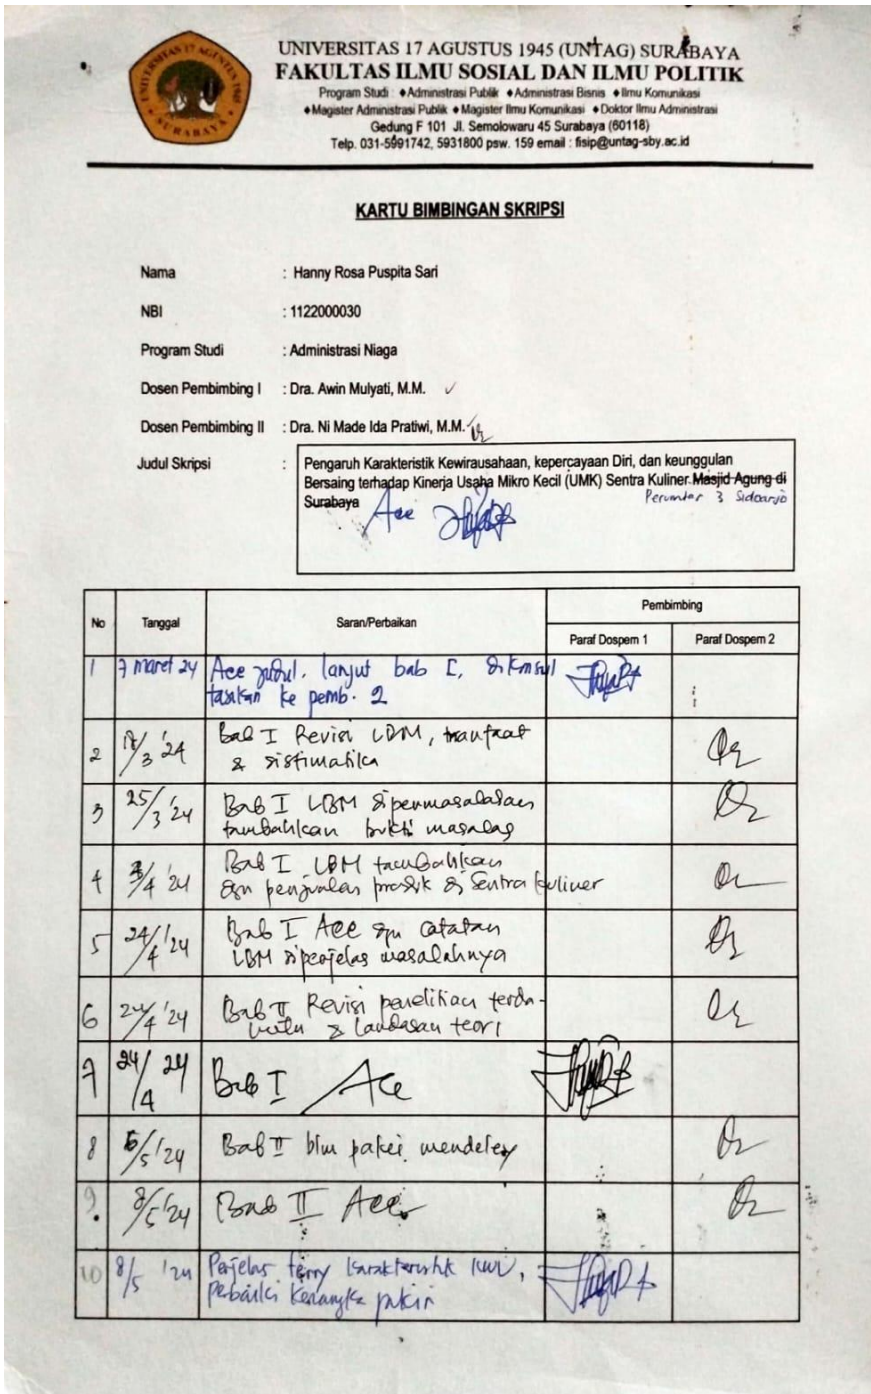 UNIVERSITAS 17 AGUSTUS 1945 (UNTAG) SURABAYA
FAKULTAS ILMU SOSIAL DAN ILMU POLITIK
Program Studi : ♦Administrasi Publik ♦Administrasi Bisnis ♦Ilmu Komunikasi
♦Magister Administrasi Publik ♦Magister Ilmu Komunikasi ♦Doktor Ilmu Administrasi
Gedung F 101 Jl. Semolowaru 45 Surabaya (60118)
Telp. 031-5991742, 5931800 psw. 159 email : fisip@untag-sby.ac.id
UNIVERSITAS 17 AGUSTUS 1945
SURABAYA
KARTU BIMBINGAN SKRIPSI
Nama : Hanny Rosa Puspita Sari
NBI : 1122000030
Program Studi : Administrasi Niaga
Dosen Pembimbing I : Dra. Awin Mulyati, M.M.
Dosen Pembimbing II : Dra. Ni Made Ida Pratiwi, M.M.
Judul Skripsi : Pengaruh Karakteristik Kewirausahaan, kepercayaan Diri, dan keunggulan
Bersaing terhadap Kinerja Usaha Mikro Kecil (UMK) Sentra Kuliner Masjid Agung di
Surabaya Perumtas 3 Sidoarjo
Acc
No Tanggal Saran/Perbaikan Pembimbing
Paraf Dospem 1 Paraf Dospem 2
1 7 maret 24 Acc judul. lanjut bab I, dikonsul
tasikan ke pemb. 2
2 /3 '24 Bab I Revisi LBM, manfaat
& sistimatika
3 25/3 '24 Bab I LBM dipermasalahan
tambahkan bukti masalah
4 /4 '24 Bab I LBM tambahkan
dgn penjualan produk di Sentra Kuliner
5 24/4 '24 Bab I Acc dgn catatan
LBM diperjelas masalahnya
6 24/4 '24 Bab II Revisi penelitian terda-
hulu & landasan teori
7 24/4 24 Bab I Acc
8 6/5 '24 Bab II blm pakai mendeley
9. 8/5 '24 Bab II Acc
10 8/5 '24 Perjelas karakteristik KWU,
Perbaiki Kerangka pikir